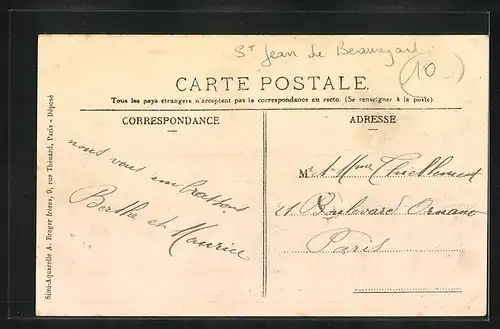 St Jean de Beauregard
10
CARTE POSTALE.
Tous les pays étrangers n'acceptent pas la correspondance au recto. (Se renseigner à la poste).
CORRESPONDANCE
ADRESSE
nous vous embrassons
Berthe et Maurice
M. et Mme Thiellement
21 Boulevard Ornano
Paris
Simi-Aquarelle A. Breger frères, 9, rue Thénard, Paris - Déposé